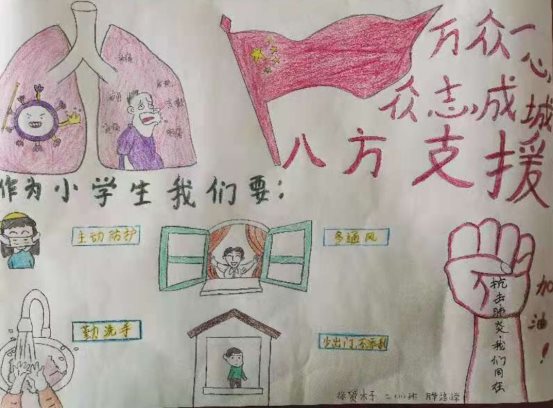 万众一心
众志成城
八方支援
作为小学生我们要：
主动防护
多通风
勤洗手
少出门不添乱
抗击肺炎我们同在
加油！